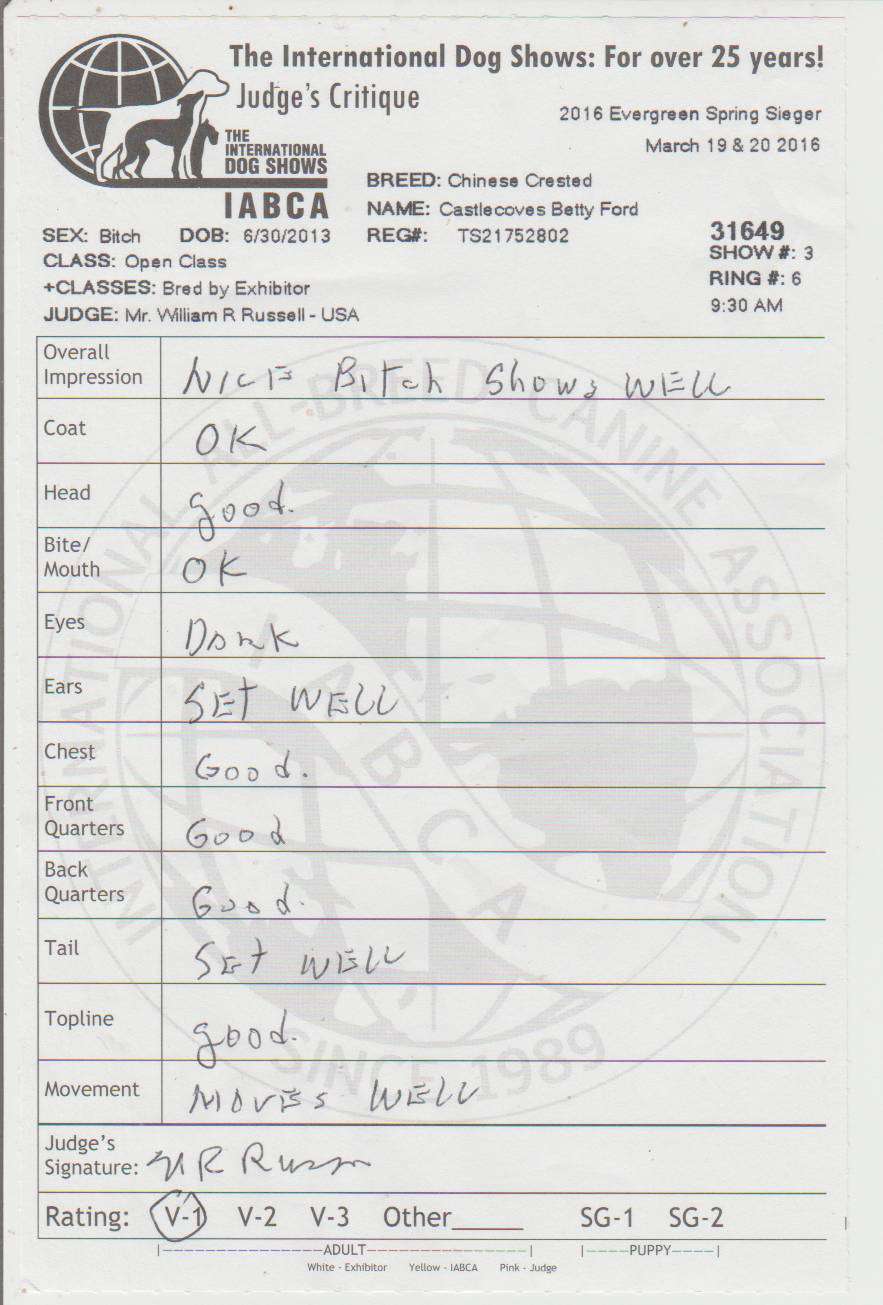 The International Dog Shows: For over 25 years!
Judge's Critique
2016 Evergreen Spring Sieger
March 19 & 20 2016
THE
INTERNATIONAL
DOG SHOWS
IABCA
BREED: Chinese Crested
NAME: Castlecoves Betty Ford
SEX: Bitch DOB: 6/30/2013 REG#: TS21752802
31649
CLASS: Open Class
SHOW #: 3
+CLASSES: Bred by Exhibitor
RING #: 6
JUDGE: Mr. William R Russell - USA
9:30 AM
Overall
Impression NICE Bitch Shows WELL
Coat OK
Head good.
Bite/
Mouth OK
Eyes Dark
Ears SET WELL
Chest Good.
Front
Quarters Good
Back
Quarters Good.
Tail SET WELL
Topline good.
Movement MOVES WELL
Judge's
Signature: R Russ
Rating: V-1 V-2 V-3 Other_____ SG-1 SG-2
ADULT PUPPY
White - Exhibitor Yellow - IABCA Pink - Judge
INTERNATIONAL ALL-BREED CANINE ASSOCIATION
IABCA
SINCE 1989